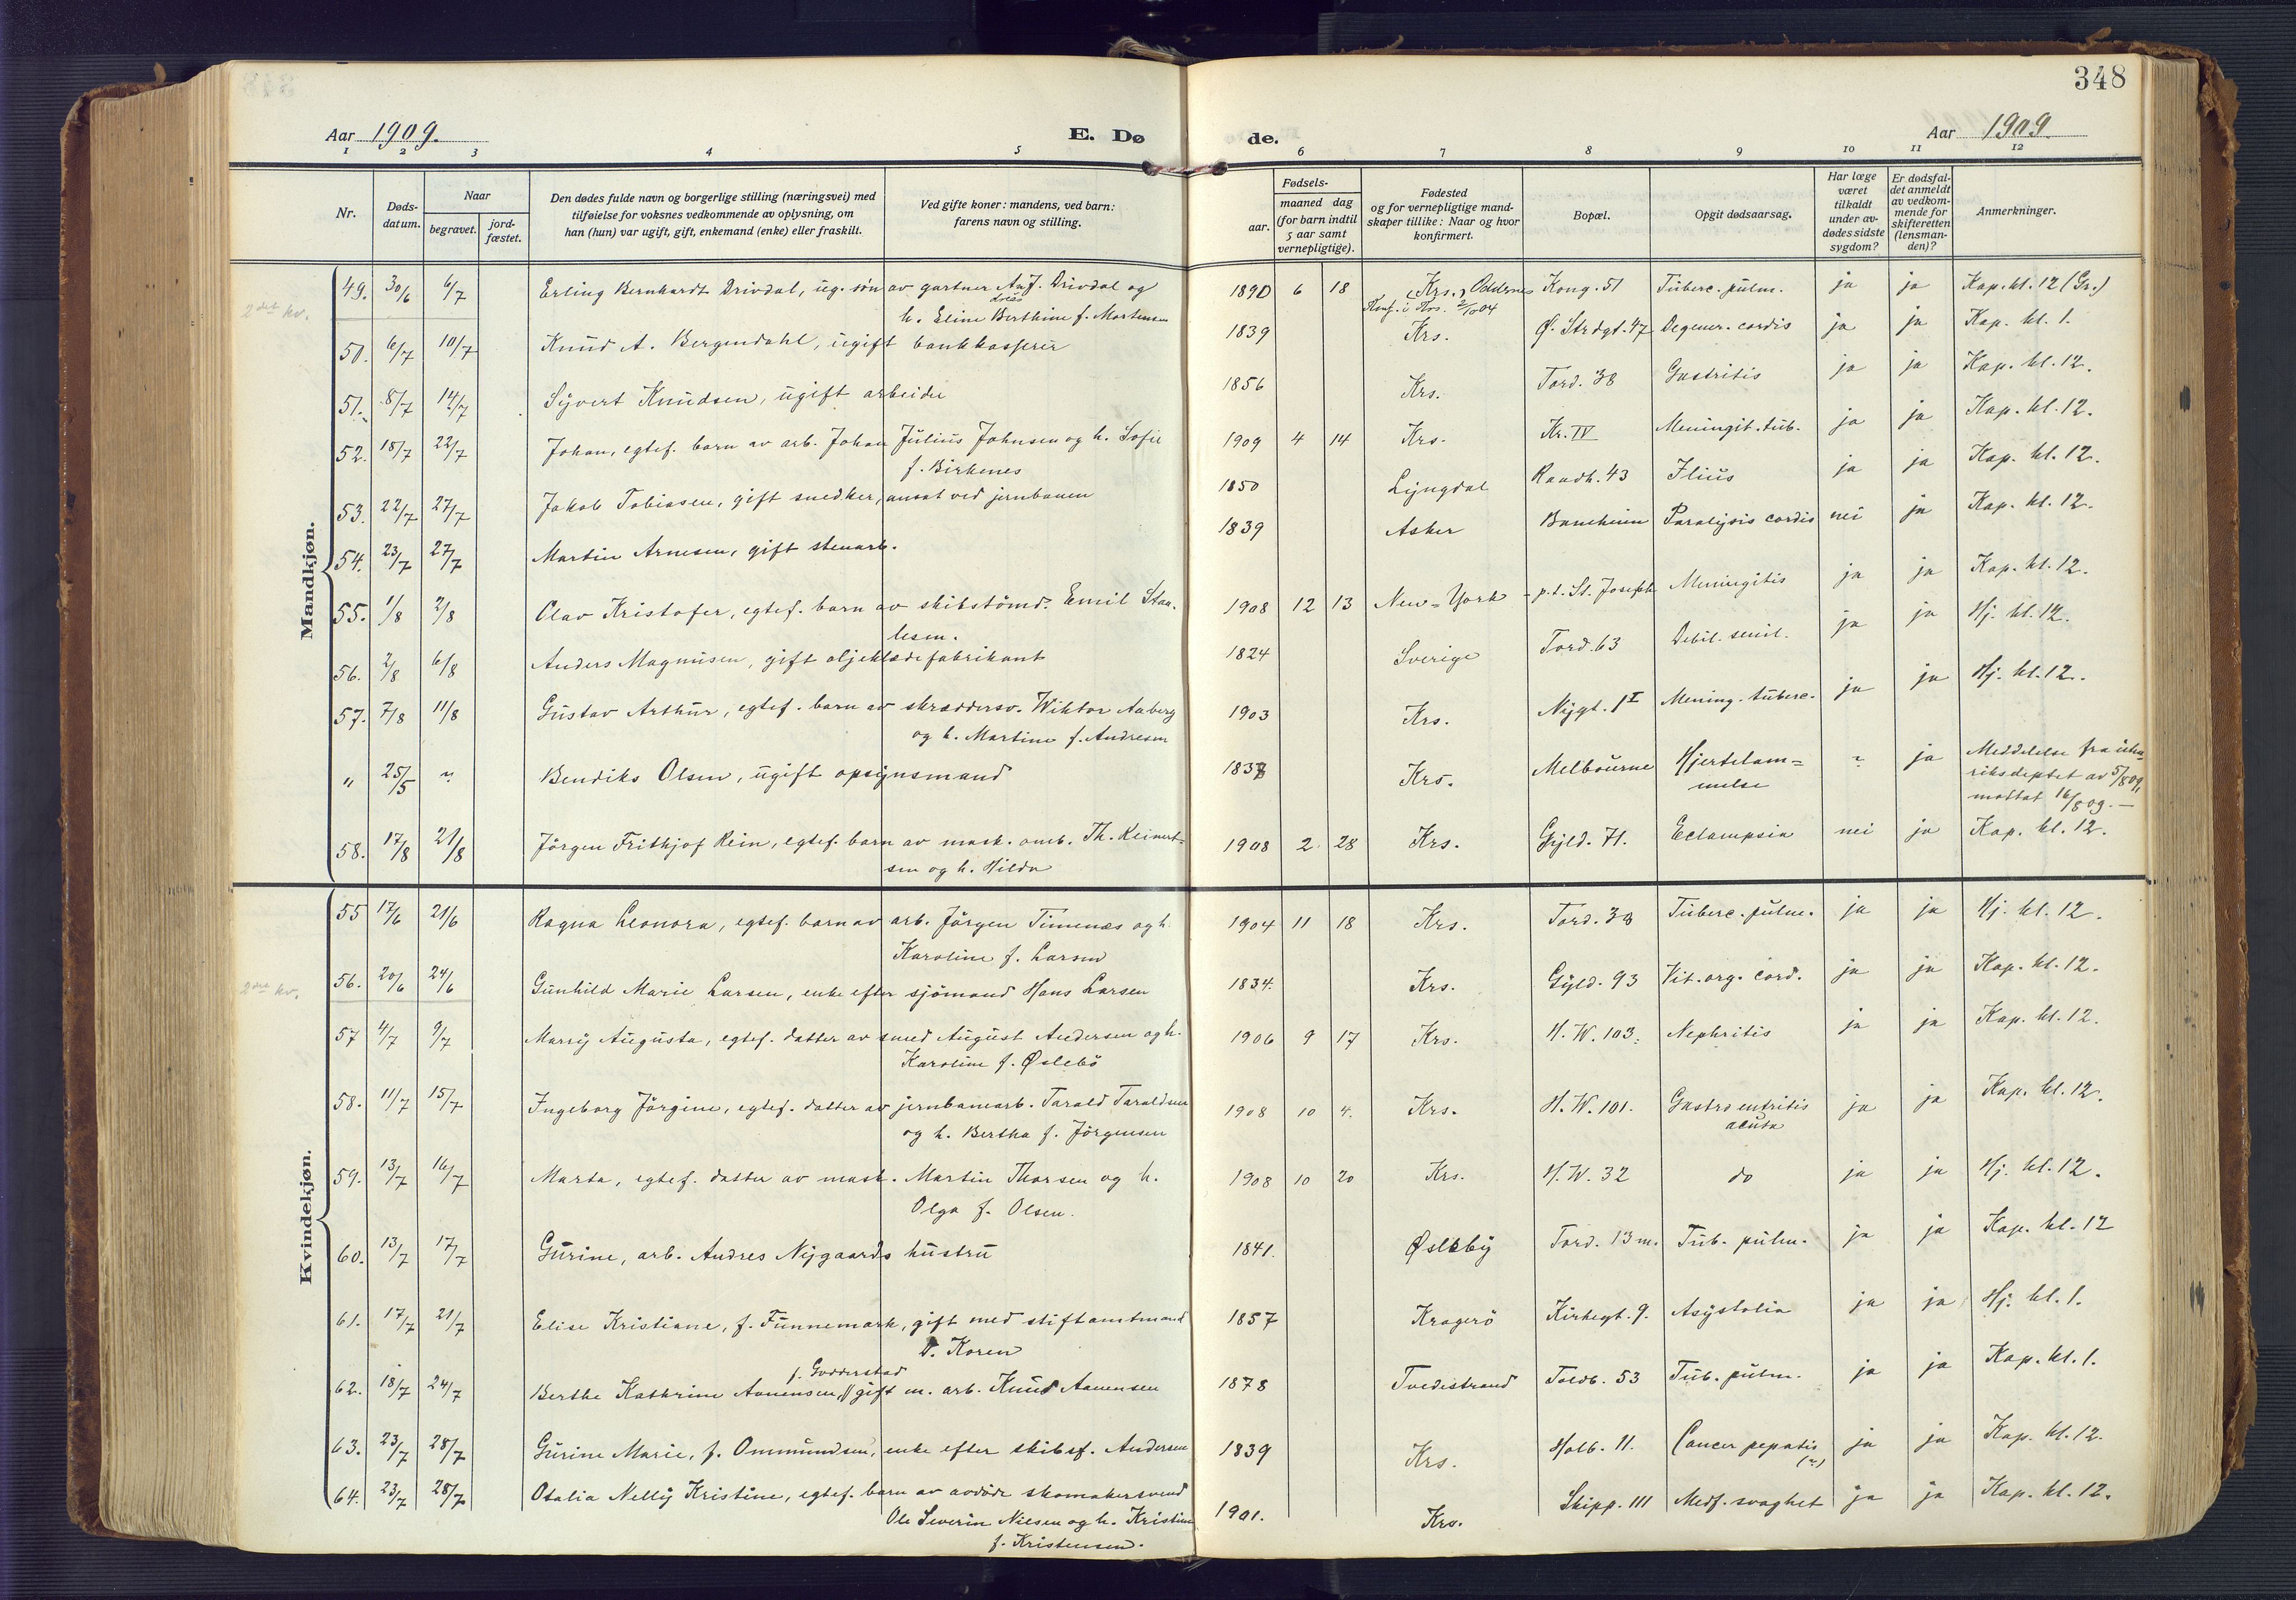 348
Aar 1909.
E. Døde.
Aar 1909.
1 2 3 4 5 6 7 8 9 10 11 12
Nr. Døds-datum. Naar begravet. jord-fæstet. Den dødes fulde navn og borgerlige stilling (næringsvei) med tilføielse for voksnes vedkommende av oplysning, om han (hun) var ugift, gift, enkemand (enke) eller fraskilt. Ved gifte koner: mandens, ved barn: farens navn og stilling. Fødsels- aar. maaned dag (for barn indtil 5 aar samt vernepligtige). Fødested og for vernepligtige mand-skaper tillike: Naar og hvor konfirmert. Bopæl. Opgit dødsaarsag. Har læge været tilkaldt under av-dødes sidste sygdom? Er dødsfal-det anmeldt av vedkom-mende for skifteretten (lensman-den)? Anmerkninger.
Mandkjøn.
2det kv.
49. 30/6 6/7 Erling Bernhardt Drivdal, ug. søn av gartner Anf. Drivdal og 1890 6 18 (Krs.) Oddernes Kong. 51 Tuberc. pulm. ja ja Kap. kl. 12 (Gr.)
h. Eline Berthine f. Mortensen Konf. i Krs. 2/10 04
50. 6/7 10/7 Knud A. Bergendahl, ugift bankkasserer 1839 Krs. Ø. Strdgt. 47 Degener. cordis ja ja Kap. kl. 1.
51. 8/7 14/7 Syvert Knudsen, ugift arbeider 1856 Krs. Tord. 38 Gastritis ja ja Kap. kl. 12.
52. 18/7 22/7 Johan, egtef. barn av arb. Johan Julius Johnsen og h. Sofie 1909 4 14 Krs. Kr. IV Meningit. tub. ja ja Kap. kl. 12.
f. Birkenes
53. 22/7 27/7 Jakob Tobiasen, gift snedker, ansat ved jernbanen 1850 Lyngdal Raadh. 43 Ilius ja ja Kap. kl. 12.
54. 23/7 27/7 Martin Arnesen, gift stenarb. 1839 Asker Baneheien Paralysis cordis nei ja Kap. kl. 12.
55. 1/8 2/8 Olav Kristofer, egtef. barn av skibstømd. Emil Staa- 1908 12 13 New-York p.t. St. Joseph Meningitis ja ja Kap. kl. 12.
lesen.
56. 2/8 6/8 Anders Magnusen, gift oljeklædefabrikant 1824 Sverige Tord. 63 Debil. senil. ja ja Hj. kl. 12.
57. 7/8 11/8 Gustav Arthur, egtef. barn av skræddersv. Wiktor Aaberg 1903 Krs. Nygt. 1 I Mening. tuberc. ja ja Hj. kl. 12.
og h. Martine f. Andresen
" 25/5 " Bendiks Olsen, ugift opsynsmand 1838 Krs. Melbourne Hjertelam= ja Meddelelse fra uten-
melse riksdeptet av 5/8 09,
mottat 16/8 09. —
58. 17/8 21/8 Jørgen Frithjof Rein, egtef. barn av mask. omb. Th. Reinert- 1908 2 28 Krs. Gyld. 71. Eclampsia nei ja Kap. kl. 12.
sen og h. Hilda
Kvindekjøn.
55 17/6 21/6 Ragna Leonora, egtef. barn av arb. Jørgen Timenæs og h. 1904 11 18 Krs. Tord. 38 Tuberc. pulm. ja ja Hj. kl. 12.
Karoline f. Larsen
2det kv.
56. 20/6 24/6 Gunhild Marie Larsen, enke efter sjømand Hans Larsen 1834. Krs. Gyld. 93 Vit. org. cord. ja ja Kap. kl. 12.
57 4/7 9/7 Marry Augusta, egtef. datter av smed August Andersen og h. 1906 9 17 Krs. H. W. 103. Nephritis ja ja Kap. kl. 12.
Karoline f. Øslebø
58. 11/7 15/7 Ingeborg Jørgine, egtef. datter av jernbanearb. Tarald Taraldsen 1908 10 4. Krs. H. W. 101. Gastro entritis ja ja Kap. kl. 12.
og h. Bertha f. Jørgensen acuta
59. 13/7 16/7 Marta, egtef. datter av mask. Martin Thorsen og h. 1908 10 20 Krs. H. W. 32 do ja ja Hj. kl. 12.
Olga f. Olsen.
60. 13/7 17/7 Gurine, arb. Andres Nygaards hustru 1841. Øsleby Tord. 13 m. Tub. pulm. ja ja Kap. kl. 12
61. 17/7 21/7 Elise Kristiane, f. Funnemark, gift med stiftamtmand 1857 Kragerø Kirkegt. 9. Asystolia ja ja Hj. kl. 1.
D. Koren
f. Godderstad
62. 18/7 24/7 Berthe Kathrine Aanensen, gift m. arb. Knud Aanensen 1878 Tvedestrand Toldb. 53 Tub. pulm. ja ja Kap. kl. 1.
63. 23/7 28/7 Gurine Marie, f. Ommundsen, enke efter skibsf. Andersen 1839 Krs. Holb. 11. Cancer pepatis ja ja Kap. kl. 12.
64. 23/7 28/7 Otalia Nelly Kristine, egtef. barn av avdøde skomakersvend 1901. Krs. Skipp. 111 Medf. svaghet ja ja Kap. kl. 12.
Ole Severin Nilsen og h. Kristine
f. Kristensen.